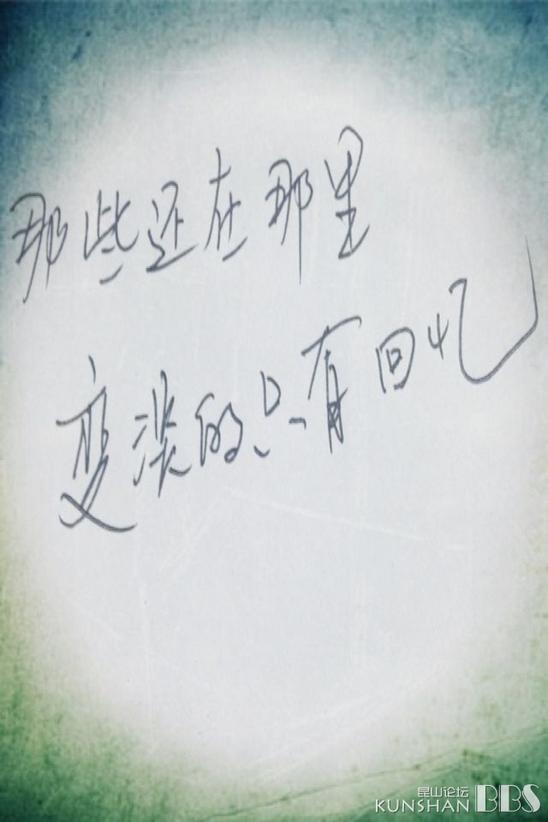 那些还在那里
变淡的只有回忆
昆山论坛
KUNSHAN BBS